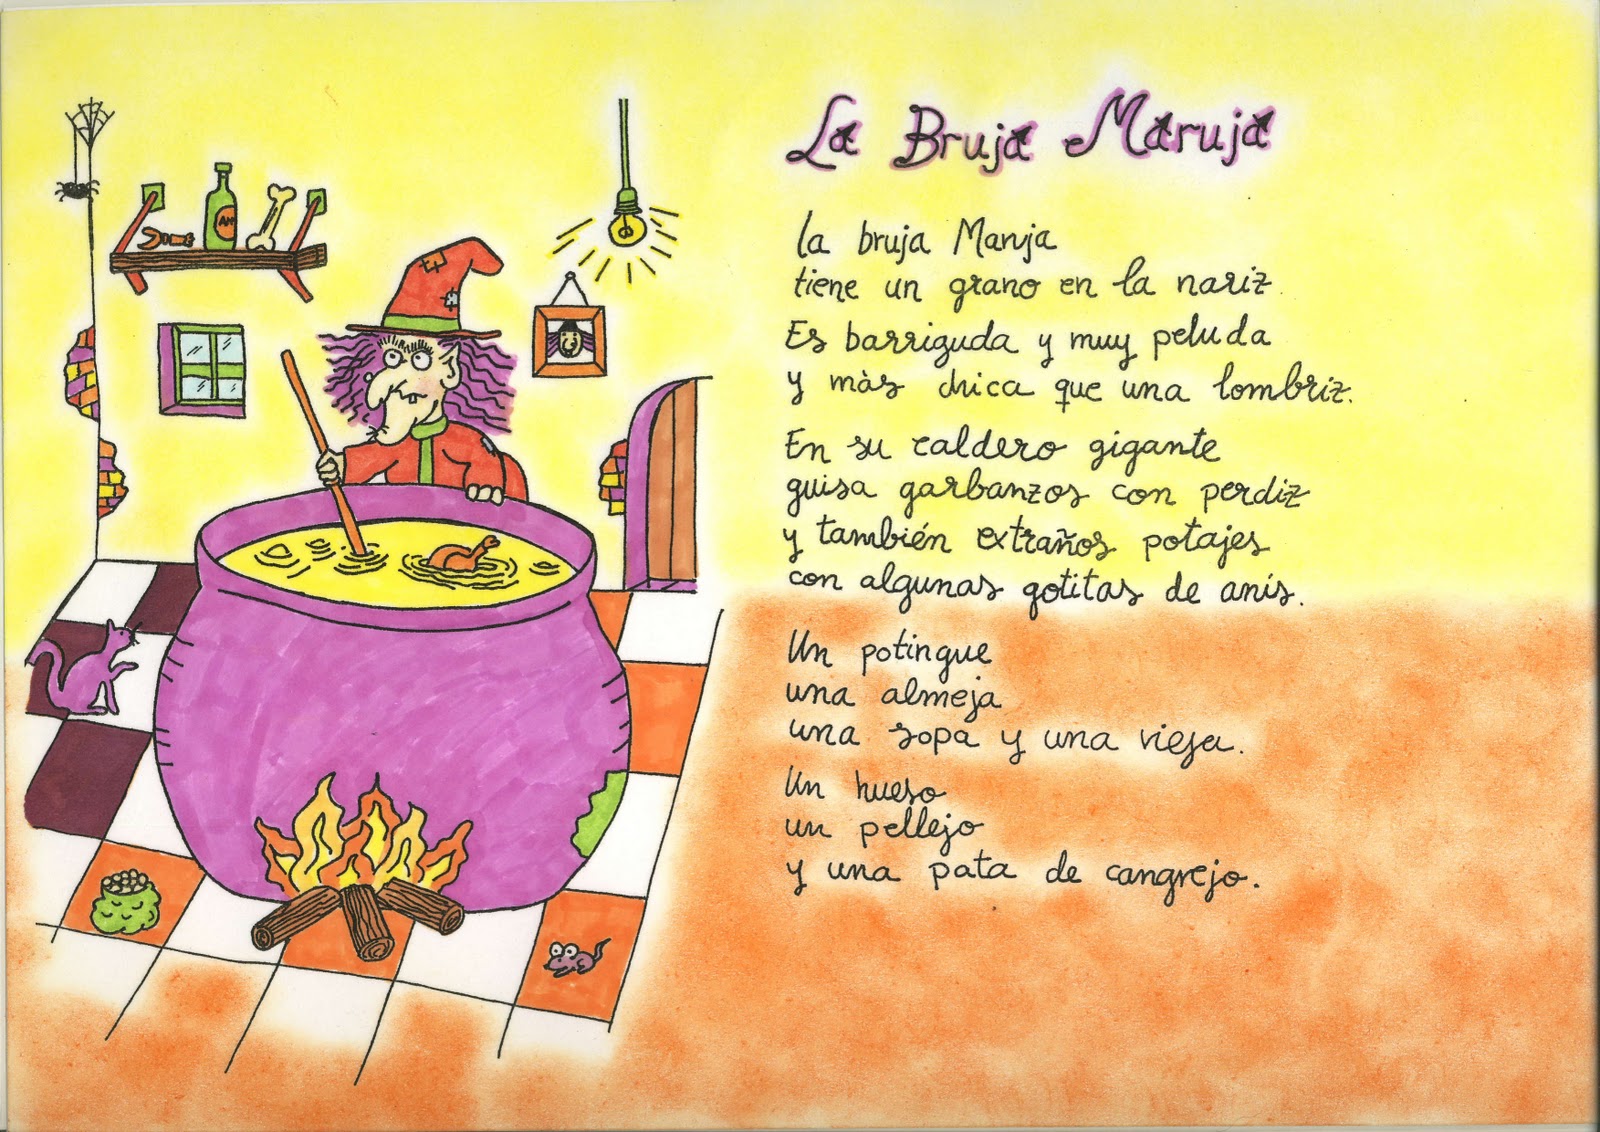 La Bruja Maruja
La bruja Maruja
tiene un grano en la nariz.
Es barriguda y muy peluda
y màs chica que una lombriz.
En su caldero gigante
guisa garbanzos con perdiz
y también extraños potajes
con algunas gotitas de anís.
Un potingue
una almeja
una sopa y una vieja.
Un hueso
un pellejo
y una pata de cangrejo.